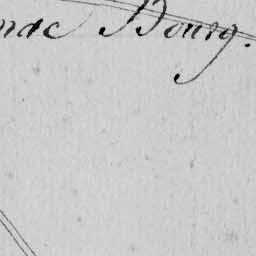 mac Bourg.